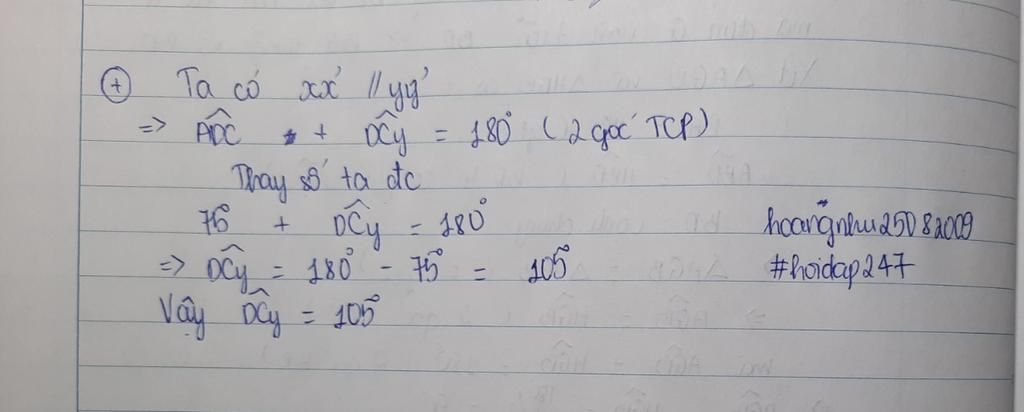 + Ta có xx' // yy'
=> ADC + DCy = 180° (2 góc TCP)
Thay số ta đc
75° + DCy = 180°
=> DCy = 180° - 75° = 105°
Vậy DCy = 105°
hoangnhu25082009
#hoidap247